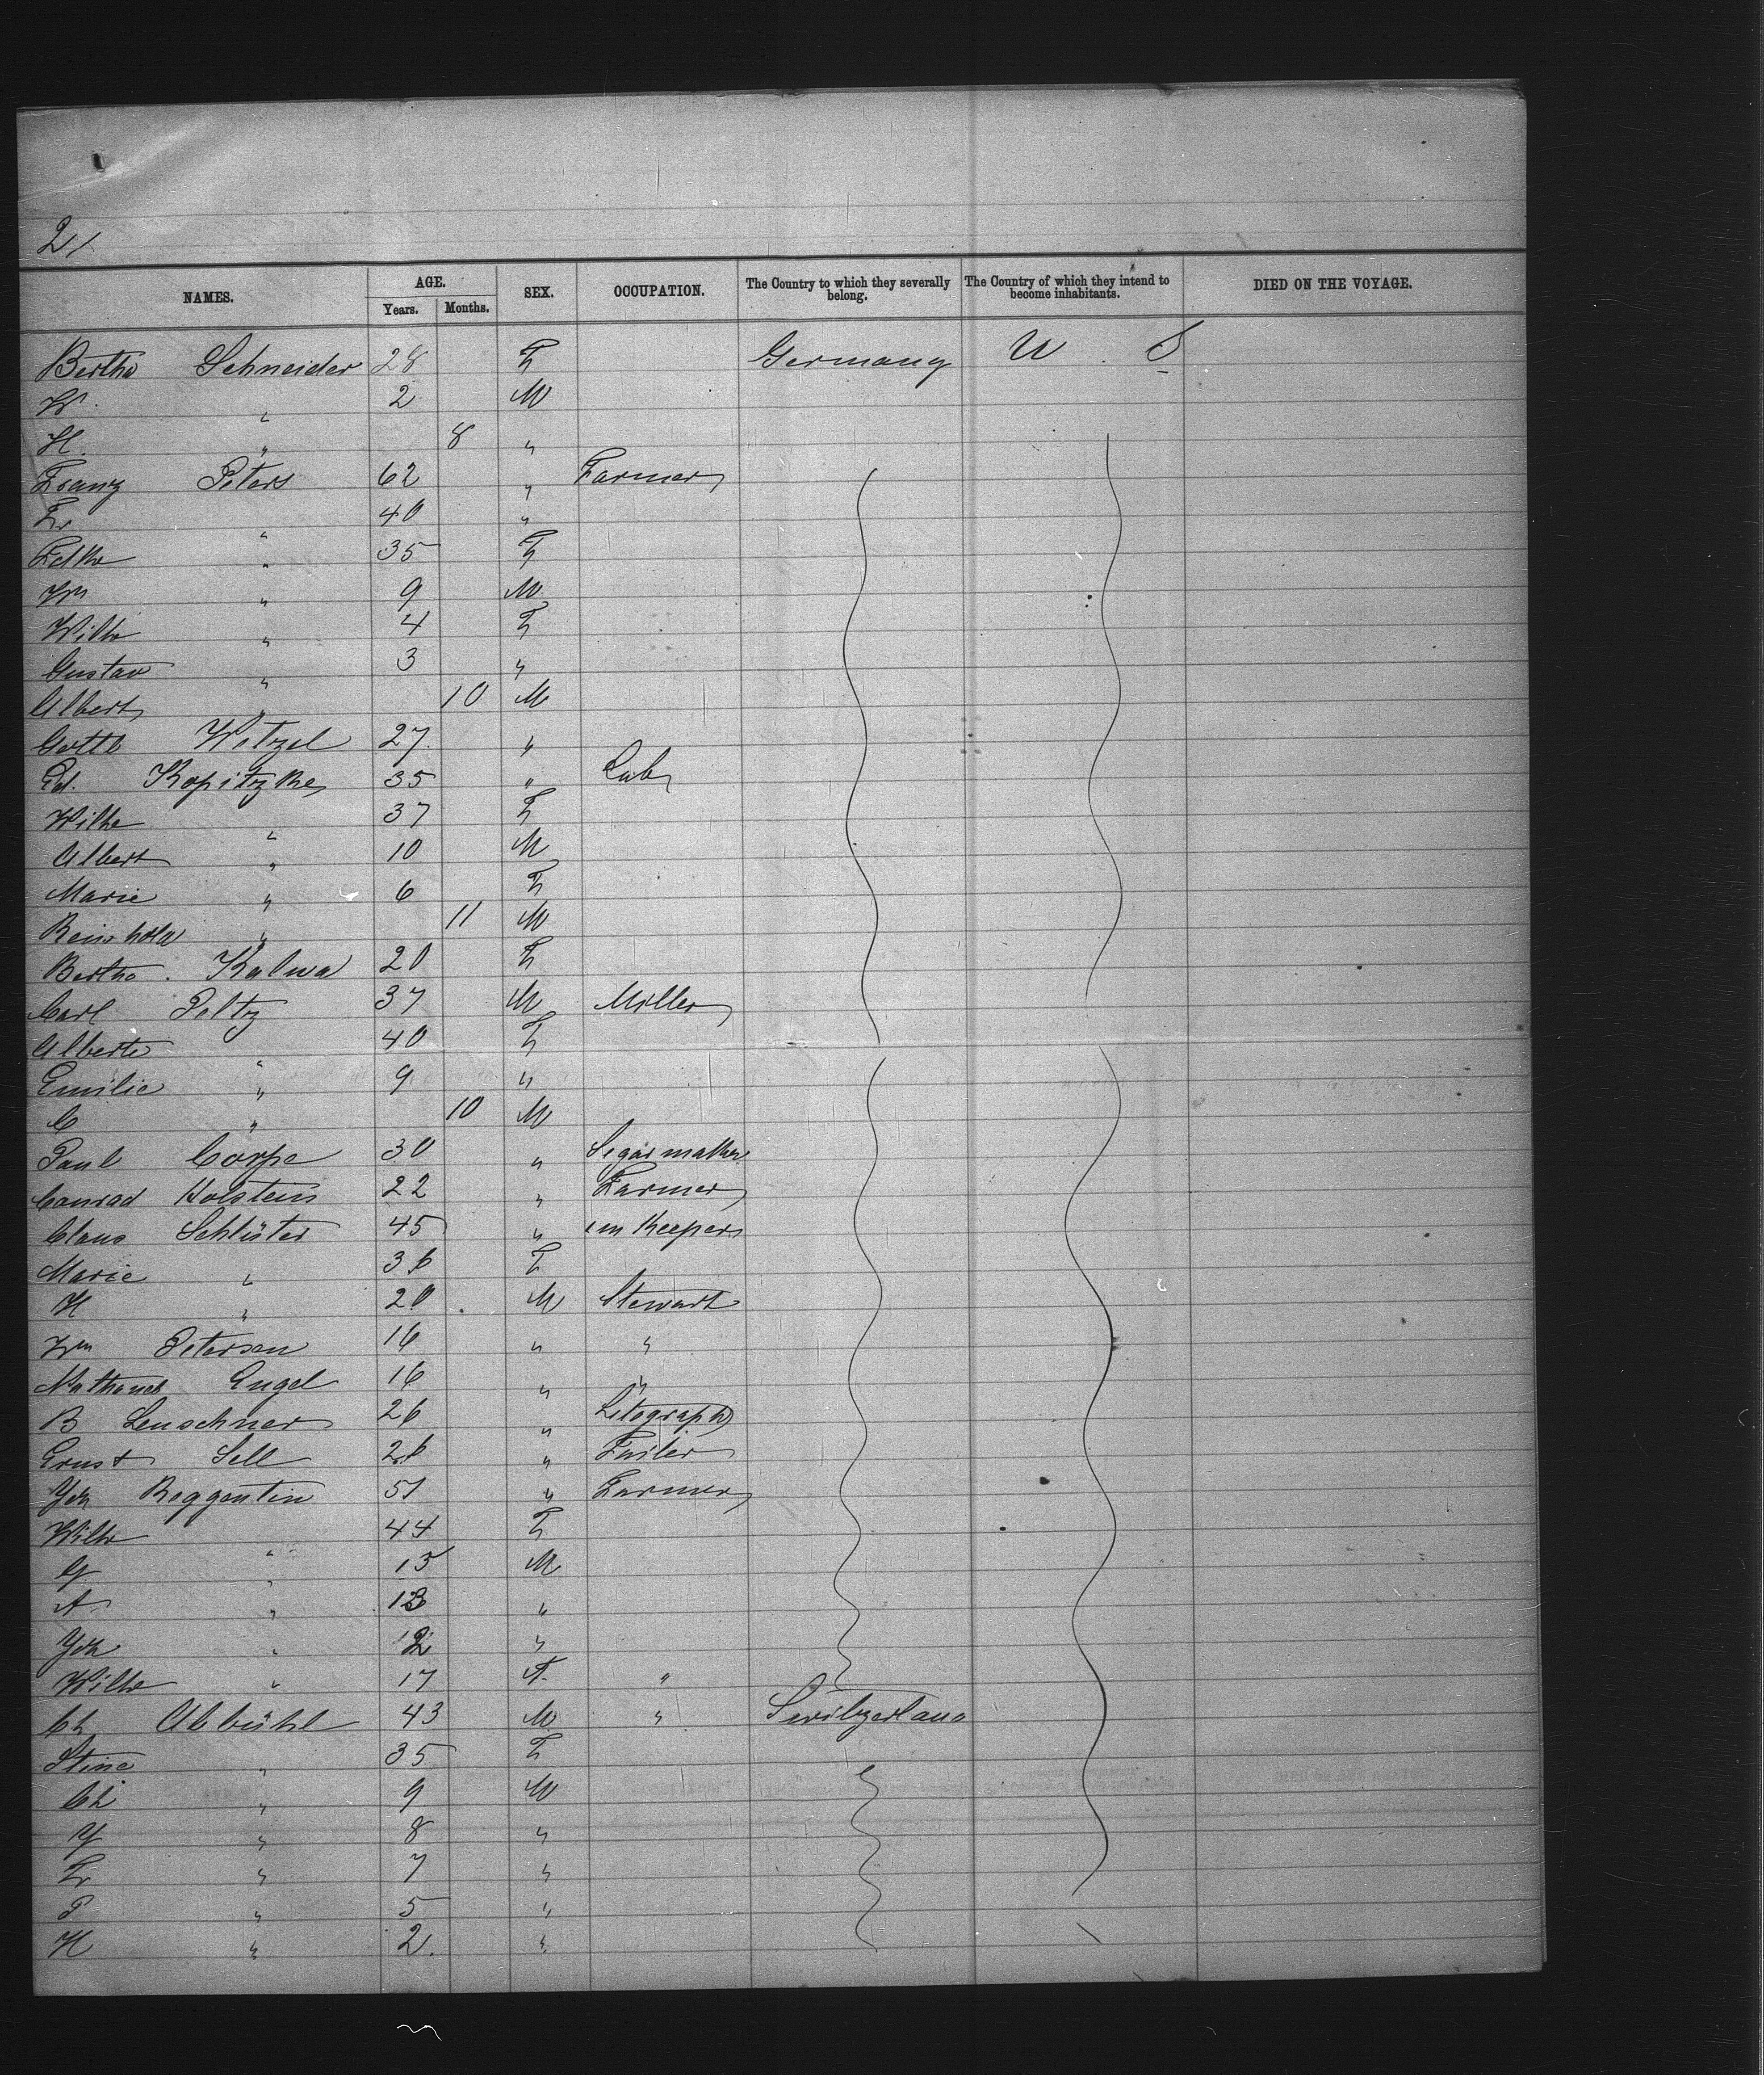 2/
NAMES. AGE. Years. Months. SEX. OCCUPATION. The Country to which they severally belong. The Country of which they intend to become inhabitants. DIED ON THE VOYAGE.
Bertha Schneider 28 F Germany U. S
W. " 2 M
H. " 8 "
Franz Peters 62 " Farmer
Fr " 40 "
" 35 F
Wm " 9 M
Wilhe " 4 F
Gustav " 3 "
Albert " 10 M
Gottl Wetzel 27 "
Ed. Kopitzke 35 " Lab
Wilhe " 37 F
Albert " 10 M
Marie " 6 F
Reinhold " 11 M
Bertha Kalwa 20 F
Carl Peltz 37 M Miller
Alberte " 40 F
Emilie " 9 "
C " 10 M
Paul Corpe 30 " Segarmaker
Conrad Holstein 22 " Farmer
Claus Schlüter 45 " inn Keeper
Marie " 36 F
H " 20 M Stewart
Wm Petersen 16 " "
Nathanel Engel 16 " "
B Leuschner 26 " Litograph
Ernst Sell 26 "
Joh Roggentin 51 " Farmer
Wilhe " 44 F
G " 15 M
A " 13 "
Joh " "
Wilhe " 17 F. "
Ch Abbühl 43 M " Switzerland
Stine " 35 F
Ch " 9 M
J " 8 "
Fr " 7 "
P " 5 "
H " 2. "